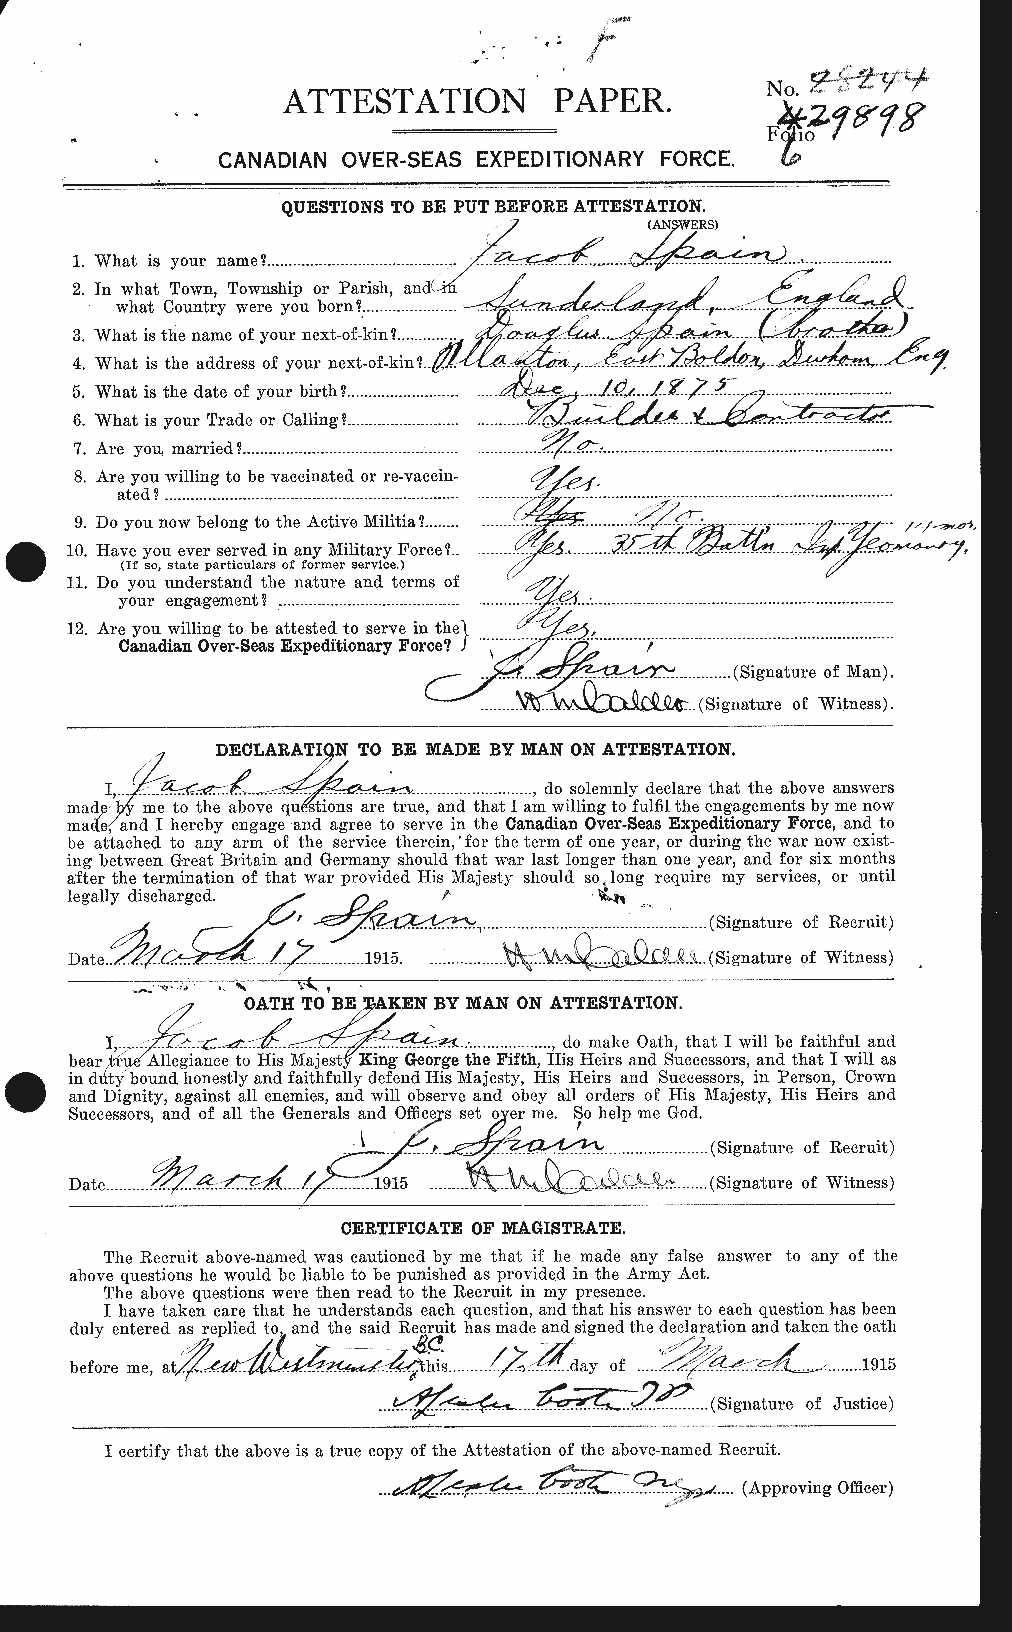 F
ATTESTATION PAPER.
No. 28244
429898
Folio
6
CANADIAN OVER-SEAS EXPEDITIONARY FORCE.
QUESTIONS TO BE PUT BEFORE ATTESTATION.
(ANSWERS)
1. What is your name? Jacob Spain
2. In what Town, Township or Parish, and in
what Country were you born? Sunderland, England
3. What is the name of your next-of-kin? Douglas Spain (brother)
4. What is the address of your next-of-kin? East Boldon, Durham, Eng.
5. What is the date of your birth? Dec. 10, 1875
6. What is your Trade or Calling? Builder & Contractor
7. Are you married? No.
8. Are you willing to be vaccinated or re-vaccin-
ated? Yes.
9. Do you now belong to the Active Militia? Yes No.
10. Have you ever served in any Military Force? Yes. 35th Batt'n Imp. Yeomanry. 14 mos.
(If so, state particulars of former service.)
11. Do you understand the nature and terms of
your engagement? Yes.
12. Are you willing to be attested to serve in the
Canadian Over-Seas Expeditionary Force? Yes.
J. Spain (Signature of Man).
(Signature of Witness).
DECLARATION TO BE MADE BY MAN ON ATTESTATION.
I, Jacob Spain, do solemnly declare that the above answers
made by me to the above questions are true, and that I am willing to fulfil the engagements by me now
made, and I hereby engage and agree to serve in the Canadian Over-Seas Expeditionary Force, and to
be attached to any arm of the service therein, for the term of one year, or during the war now exist-
ing between Great Britain and Germany should that war last longer than one year, and for six months
after the termination of that war provided His Majesty should so long require my services, or until
legally discharged.
J. Spain (Signature of Recruit)
Date March 17 1915. (Signature of Witness)
OATH TO BE TAKEN BY MAN ON ATTESTATION.
I, Jacob Spain, do make Oath, that I will be faithful and
bear true Allegiance to His Majesty King George the Fifth, His Heirs and Successors, and that I will as
in duty bound honestly and faithfully defend His Majesty, His Heirs and Successors, in Person, Crown
and Dignity, against all enemies, and will observe and obey all orders of His Majesty, His Heirs and
Successors, and of all the Generals and Officers set over me. So help me God.
J. Spain (Signature of Recruit)
Date March 17 1915 (Signature of Witness)
CERTIFICATE OF MAGISTRATE.
The Recruit above-named was cautioned by me that if he made any false answer to any of the
above questions he would be liable to be punished as provided in the Army Act.
The above questions were then read to the Recruit in my presence.
I have taken care that he understands each question, and that his answer to each question has been
duly entered as replied to, and the said Recruit has made and signed the declaration and taken the oath
before me, at New Westminster B.C. this 17th day of March 1915
(Signature of Justice)
I certify that the above is a true copy of the Attestation of the above-named Recruit.
(Approving Officer)